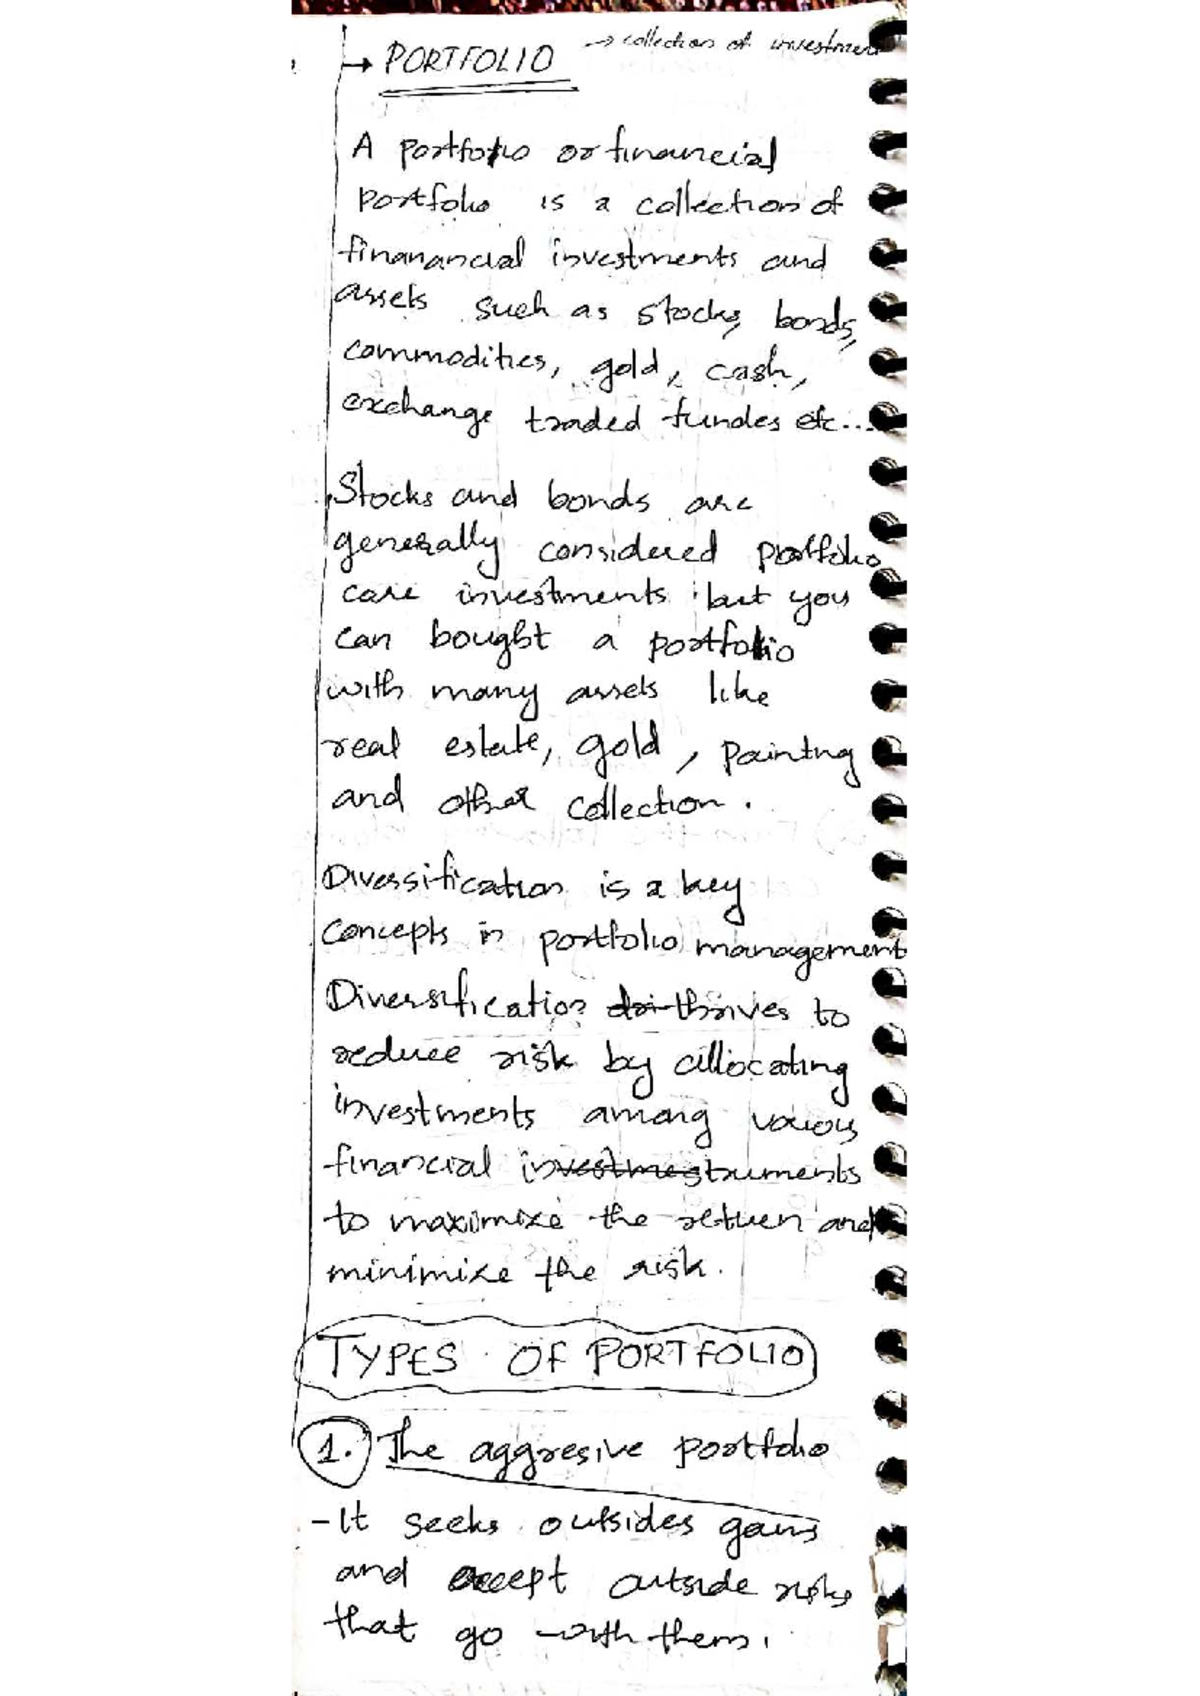 → PORTFOLIO → collection of investment
A portfolio or financial
portfolio is a collection of
finanancial investments and
assets such as stocks, bonds,
commodities, gold, cash,
exchange traded fundes etc...
Stocks and bonds are
generally considered portfolio
core investments but you
can bought a portfolio
with many assets like
real estate, gold, painting
and other collection.
Diversification is a key
Concepts in portfolio management
Diversification thrives to
reduce risk by allocating
investments among various
financial instruments
to maximize the return and
minimize the risk.
TYPES OF PORTFOLIO
1. The aggresive portfolio
- It seeks outsides gains
and accept outside risks
that go with them.